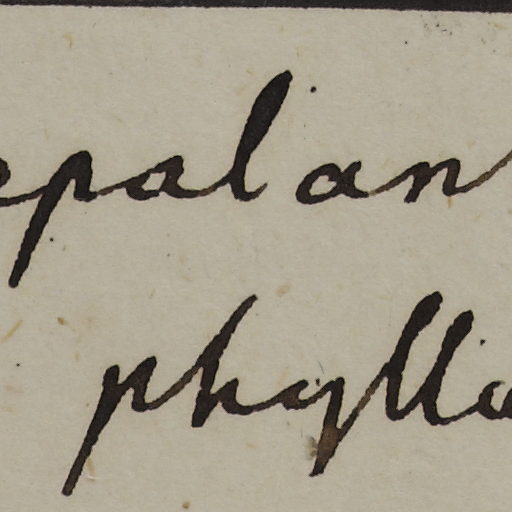 epalan
phylla